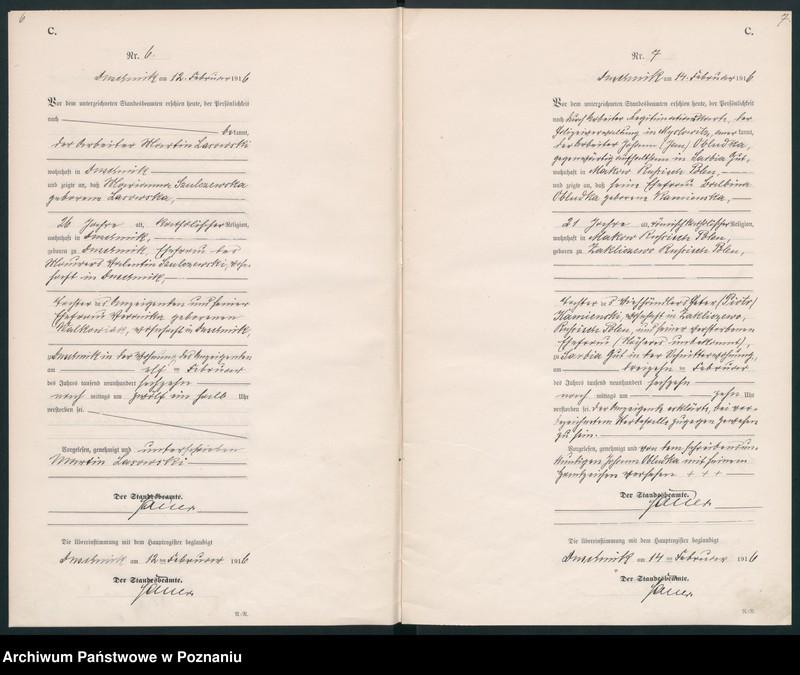 6
C.
Nr. 6.
am 12. Februar 1916
Vor dem unterzeichneten Standesbeamten erschien heute, der Persönlichkeit
nach
kannt,
der Arbeiter Martin Lasowski
wohnhaft in
und zeigte an, daß Marianna Szulczewska
geborene Lasowska,
26 Jahre alt, katholischer Religion,
wohnhaft in
geboren zu Ehefrau des
Maurers Valentin Szulczewski, wohn-
haft in
Tochter des Anzeigenden und seiner
Ehefrau geborenen
wohnhaft in
in der Wohnung des Anzeigenden
am elften Februar
des Jahres tausend neunhundert sechzehn
nach mittags um zwölf ein halb Uhr
verstorben sei.
Vorgelesen, genehmigt und unterschrieben
Martin Lasowski
Der Standesbeamte.
Die Übereinstimmung mit dem Hauptregister beglaubigt
am 12ten Februar 1916
Der Standesbeamte.
R.-R.
7.
C.
Nr. 7
am 14. Februar 1916
Vor dem unterzeichneten Standesbeamten erschien heute, der Persönlichkeit
nach durch Arbeiter Legitimationskarte, der
Polizeiverwaltung in Myslowitz, anerkannt,
der Arbeiter Johann (Jan) Obludka,
gegenwärtig aufhaltsam in Sarbia Gut,
wohnhaft in Makow Russisch Polen,
und zeigte an, daß seine Ehefrau Balbina
Obludka geborene Kamienska,
21 Jahre alt, römisch katholischer Religion,
wohnhaft in Makow Russisch Polen,
geboren zu Zakliczewo Russisch Polen,
Tochter des Viehhändlers Peter (Piotr)
Kamienski, wohnhaft in Zakliczewo,
Russisch Polen, und seiner verstorbenen
Ehefrau (Näheres unbekannt),
zu Sarbia Gut in der Schnitterwohnung,
am dreizehnten Februar
des Jahres tausend neunhundert sechzehn
nach mittags um zehn Uhr
verstorben sei. Der Anzeigende erklärte, bei vor-
bezeichnetem Sterbefalle zugegen gewesen
zu sein.
Vorgelesen, genehmigt und von dem schreibensun-
kundigen Johann Obludka mit seinem
Handzeichen versehen + + +
Der Standesbeamte.
Die Übereinstimmung mit dem Hauptregister beglaubigt
am 14ten Februar 1916
Der Standesbeamte.
R.-R.
Archiwum Państwowe w Poznaniu